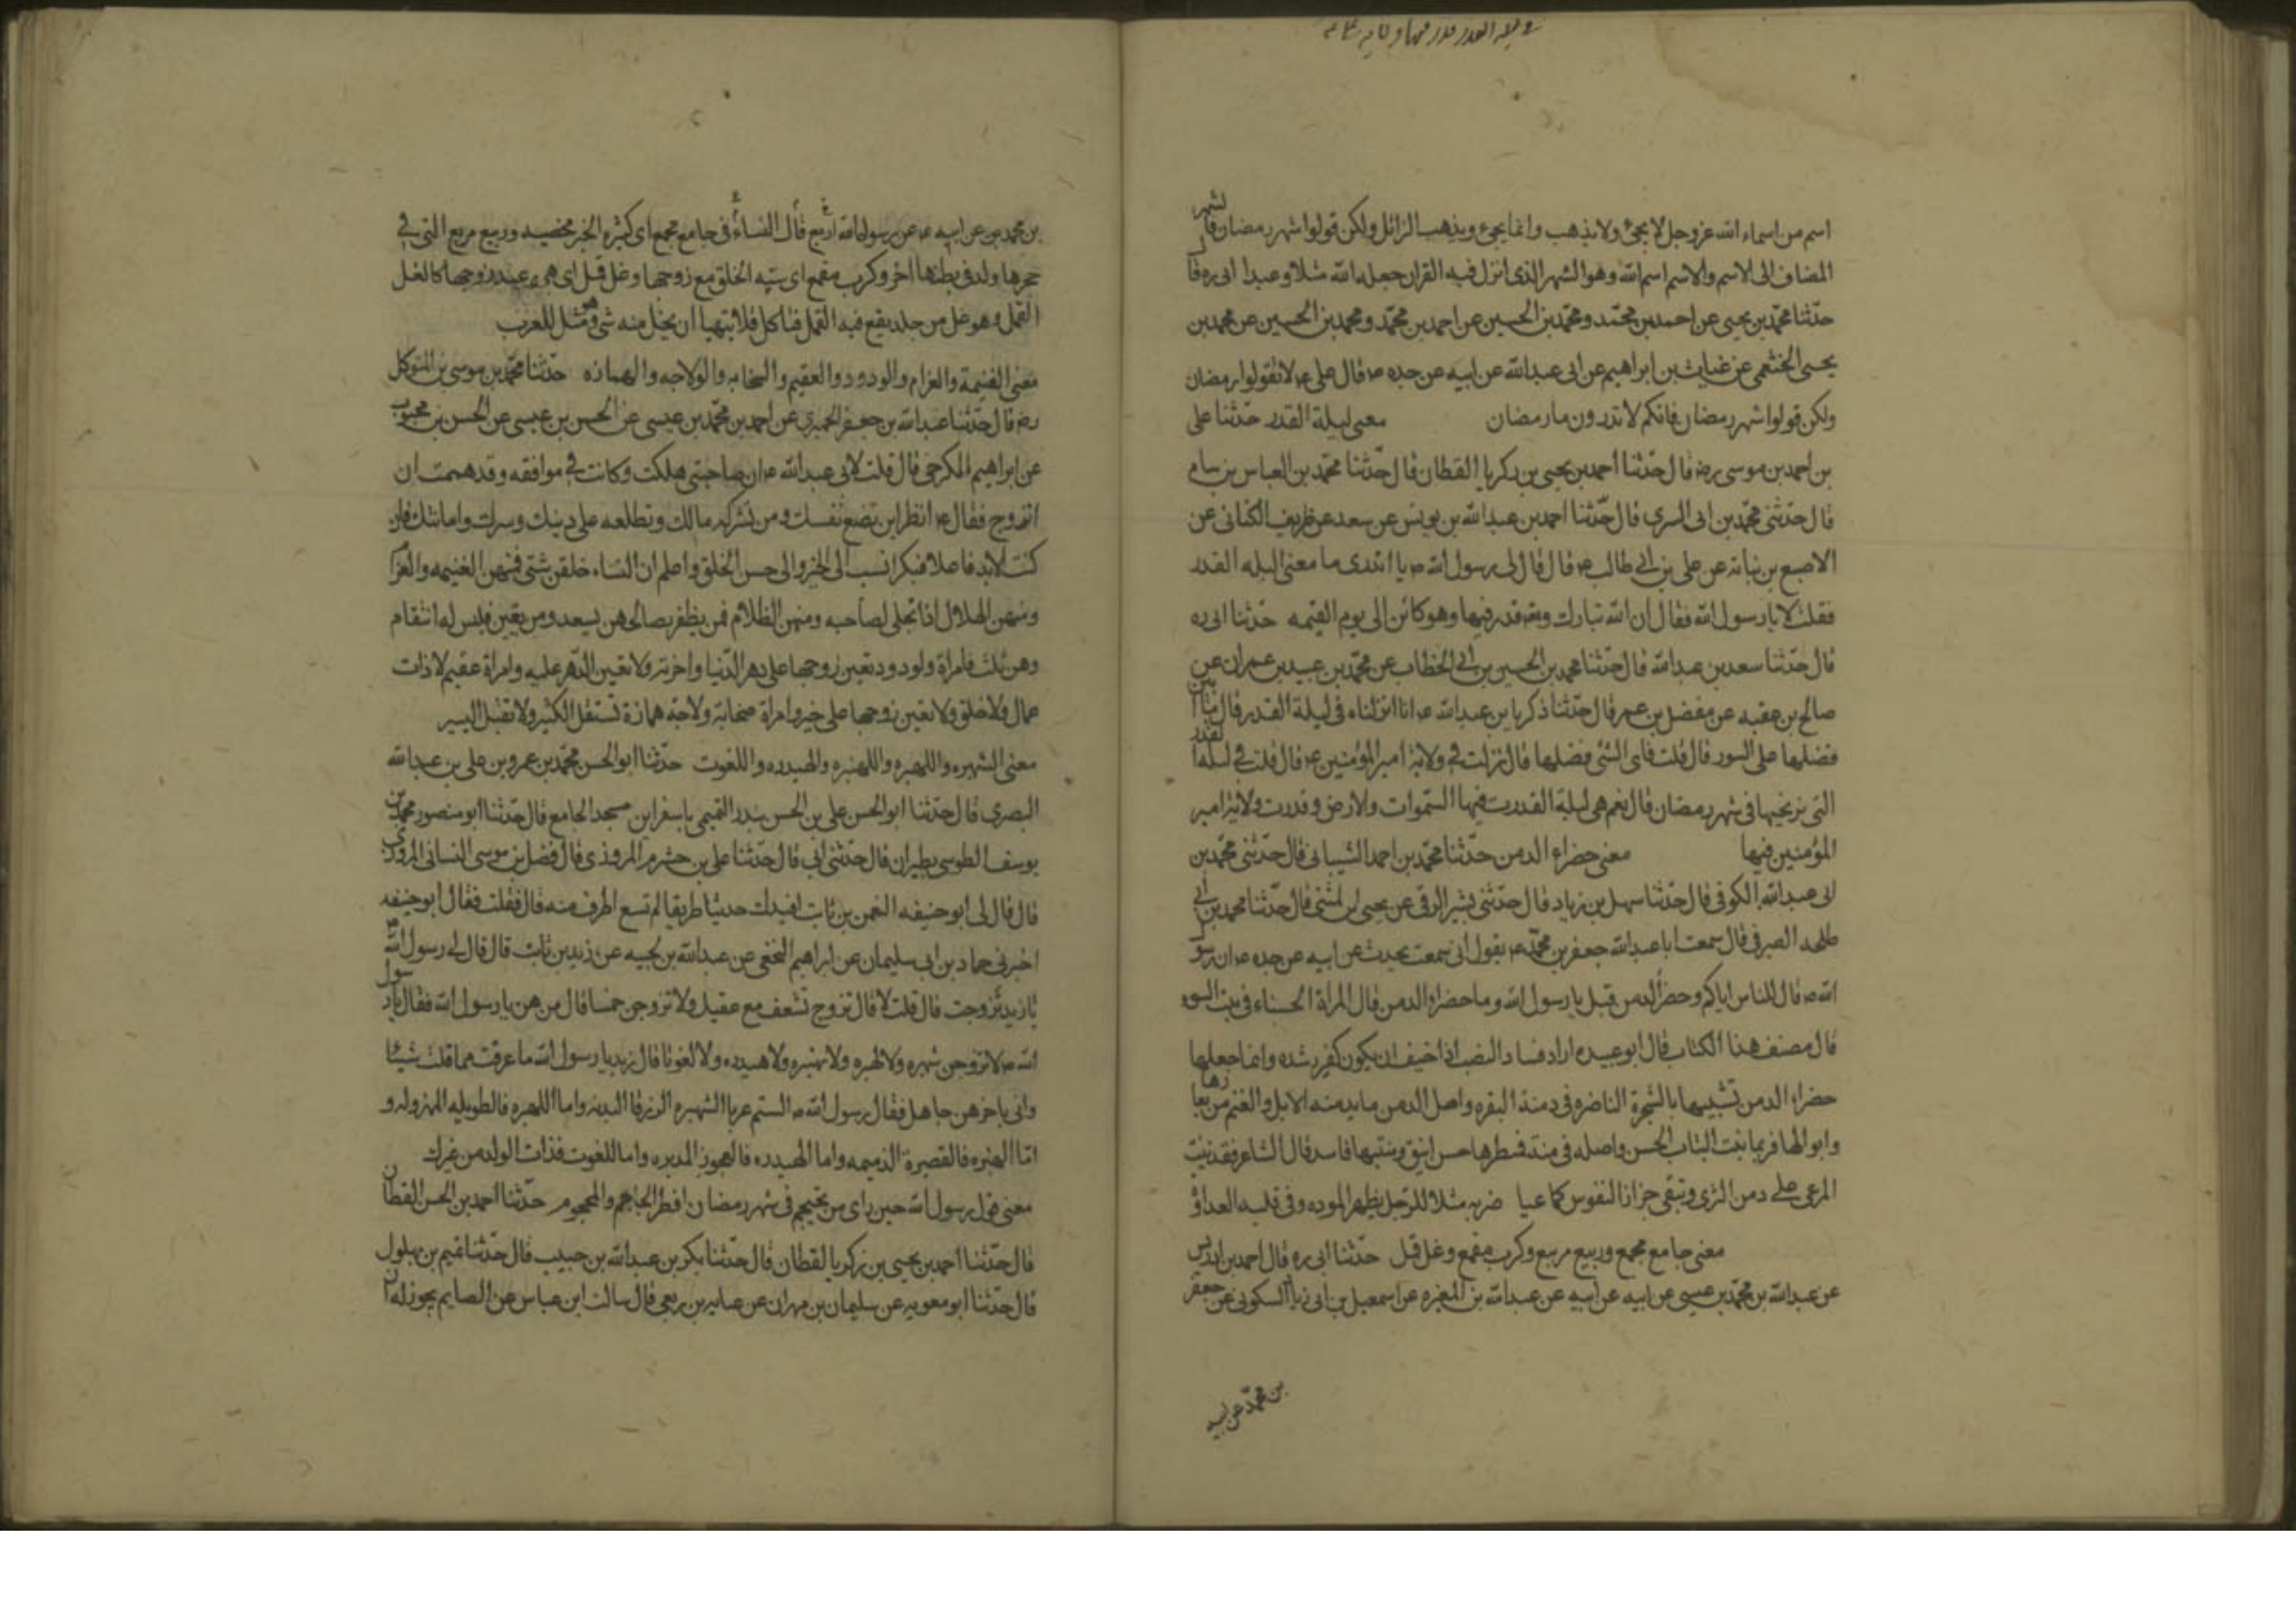 اسم من اسماء الله عز وجل لا يجئ ولا يذهب وانما يجئ ويذهب الزائل ولكن قولوا شهر رمضان فالشهر
المضاف الى الاسم والاسم اسم الله وهو الشهر الذى انزل فيه القران جعله الله مثلا وعيدا ابى ره قال
حدثنا محمد بن يحيى عن احمد بن محمد ومحمد بن الحسين عن احمد بن محمد ومحمد بن الحسين عن محمد بن
يحيى الخثعمى عن غياث بن ابراهيم عن ابى عبدالله عن ابيه عن جده ع قال على ع لا تقولوا رمضان
ولكن قولوا شهر رمضان فانكم لا تدرون ما رمضان معنى ليلة القدر حدثنا على
بن احمد بن موسى رض قال حدثنا احمد بن يحيى بن زكريا القطان قال حدثنا محمد بن العباس بن بسام
قال حدثنى محمد بن ابى السرى قال حدثنا احمد بن عبدالله بن يونس عن سعد عن طريف الكنانى عن
الاصبغ بن نباتة عن على بن ابى طالب ع قال قال لى رسول الله ص يا اتدرى ما معنى ليله القدر
فقلت لا يا رسول الله فقال ان الله تبارك وتع قدر فيها وهو كائن الى يوم القيمه حدثنا ابى ره
قال حدثنا سعد بن عبدالله قال حدثنا محمد بن الحسين بن ابى الخطاب عن محمد بن عبيد بن عمران عن
صالح بن عقبه عن مفضل بن عمر قال حدثنا ذكريا بن عبدالله ع انا انزلناه فى ليلة القدر قال
فضلها على السور قال قلت فاى الشئ فضلها قال نزلت فى ولاية امير المؤمنين ع قال قلت فى ليله القدر
التى نرتجيها فى شهر رمضان قال نعم هى ليلة القدرت فيها السموات والارض وقدرت ولاية امير
المؤمنين فيها معنى خضراء الدمن حدثنا محمد بن احمد الشيبانى قال حدثنى محمد بن
ابى عبدالله الكوفى قال حدثنا سهل بن زياد قال حدثنى بشير الرقى عن يحيى بن المثنى قال حدثنا محمد بن ابى
طلحه الصيرفى قال سمعت ابا عبدالله جعفر بن محمد ع يقول ابى سمعت يحدث عن ابيه عن جده ع ان رسول
الله ص قال للناس اياكم وخضراء الدمن قيل يا رسول الله وما خضراء الدمن قال المراة الحسناء فى منبت السوء
قال مصنف هذا الكتاب قال ابو عبيده اراد فساد النسب اذا خيف ان يكون لغير رشده وانما جعلها
خضراء الدمن تشبيها بالشجرة الناضره فى دمنة البقره واصل الدمن ما يدمنه الابل والغنم من بعارها
وابوالها فربما ينبت النبات الحسن واصله فى دمنة فمنظرها حسن انيق ومنبتها فاسد قال الشاعر فقد ينبت
المرعى على دمن الثرى وتبقى حزازات النفوس كما هيا ضربه مثلا للرجل يظهر الموده وفى قلبه العداوة
معنى جامع مجمع وربيع مربع وكرب مقمع وغل قمل حدثنا ابى ره قال احمد بن ادريس
عن عبدالله بن محمد بن عيسى عن ابيه عن ابيه عن عبدالله بن المغيره عن اسمعيل بن ابى زياد السكونى عن جعفر
بن محمد عن ابيه
بن محمد عن ابيه ع عن رسول الله اربع قال النساء اربع جامع مجمع اى كثيرة الخير مخصبه وربيع مربع التى فى
حجرها ولد وفى بطنها اخر وكرب مقمع اى سيئه الخلق مع زوجها وغل قمل اى هى عند زوجها كالغل
القمل وهو غل من جلد يقع فيه القمل فياكل فلا يتهيا ان يحل منه شئ وهو مثل للعرب
معنى الغنيمة والغرام والودود والعقيم والصخابه والولاجه والهمازه حدثنا محمد بن موسى بن المتوكل
رض قال حدثنا عبدالله بن جعفر الحميرى عن احمد بن محمد بن عيسى عن الحسن بن عيسى عن الحسن بن محبوب
عن ابراهيم الكرخى قال قلت لابى عبدالله ع ان صاحبتى هلكت وكانت لى موافقه وقد هممت ان
اتزوج فقال ع انظر اين تضع نفسك ومن تشركه مالك وتطلعه على دينك وسرك وامانتك فان
كنت لابد فاعلا فبكرا تنسب الى الخير والى حسن الخلق واعلم ان النساء خلقن شتى فمنهن الغنيمه والغرام
ومنهن الهلال اذا تجلى لصاحبه ومنهن الظلام فمن يظفر بصالحهن يسعد ومن يغبن فليس له انتقام
وهن ثلث فامراة ولود ودود تعين زوجها على دهر الدنيا واخرته ولا تعين الدهر عليه وامراة عقيم لا ذات
جمال ولا خلق ولا تعين زوجها على خير وامراة صخابة ولاجة همازة تستقل الكثير ولا تقبل اليسير
معنى الشهبره واللهبره والنهبره والهيدره واللفوت حدثنا ابو الحسن محمد بن عمرو بن على بن عبدالله
البصرى قال حدثنا ابو الحسن على بن الحسن بندر التميمى باسفراين مسجد الجامع قال حدثنا ابو منصور محمد بن
يوسف الطوسى بطبران قال حدثنى ابى قال حدثنا على بن خشرم المروذى قال فضل بن موسى النسانى المروزى
قال قال لى ابو حنيفه النعمن بن ثابت افيدك حديثا طريفا لم تسمع اطرف منه قال فقلت فقال ابو حنيفه
اخبرنى حماد بن ابى سليمان عن ابراهيم النخعى عن عبدالله بن بجيه عن زيد بن ثابت قال قال لى رسول الله ص
يا زيد تزوجت قال قلت لا قال تزوج تستعف مع عفتك ولا تزوجن خمسا قال من هن يا رسول الله فقال رسول
الله ص لا تزوجن شهبره ولا لهبره ولا نهبره ولا هيدره ولا لفوتا قال زيد يا رسول الله ما عرفت مما قلت شيئا
وانى باخرهن جاهل فقال رسول الله ص الستم عربا الشهبره الزرقا البذيه واما اللهبره فالطويله المهزوله و
اما النهبره فالقصيرة الذميمه واما الهيدره فالعجوز المدبره واما اللفوت فذات الولد من غيرك
معنى قول رسول الله حين راى من يحتجم فى شهر رمضان افطر الحاجم والمحجوم حدثنا احمد بن الحسن القطان
قال حدثنا احمد بن يحيى بن زكريا القطان قال حدثنا بكر بن عبدالله بن حبيب قال حدثنا تميم بن بهلول
قال حدثنا ابو معويه عن سليمان بن مهران عن عبايه بن ربعى قال سالت ابن عباس عن الصايم يجوز له ان